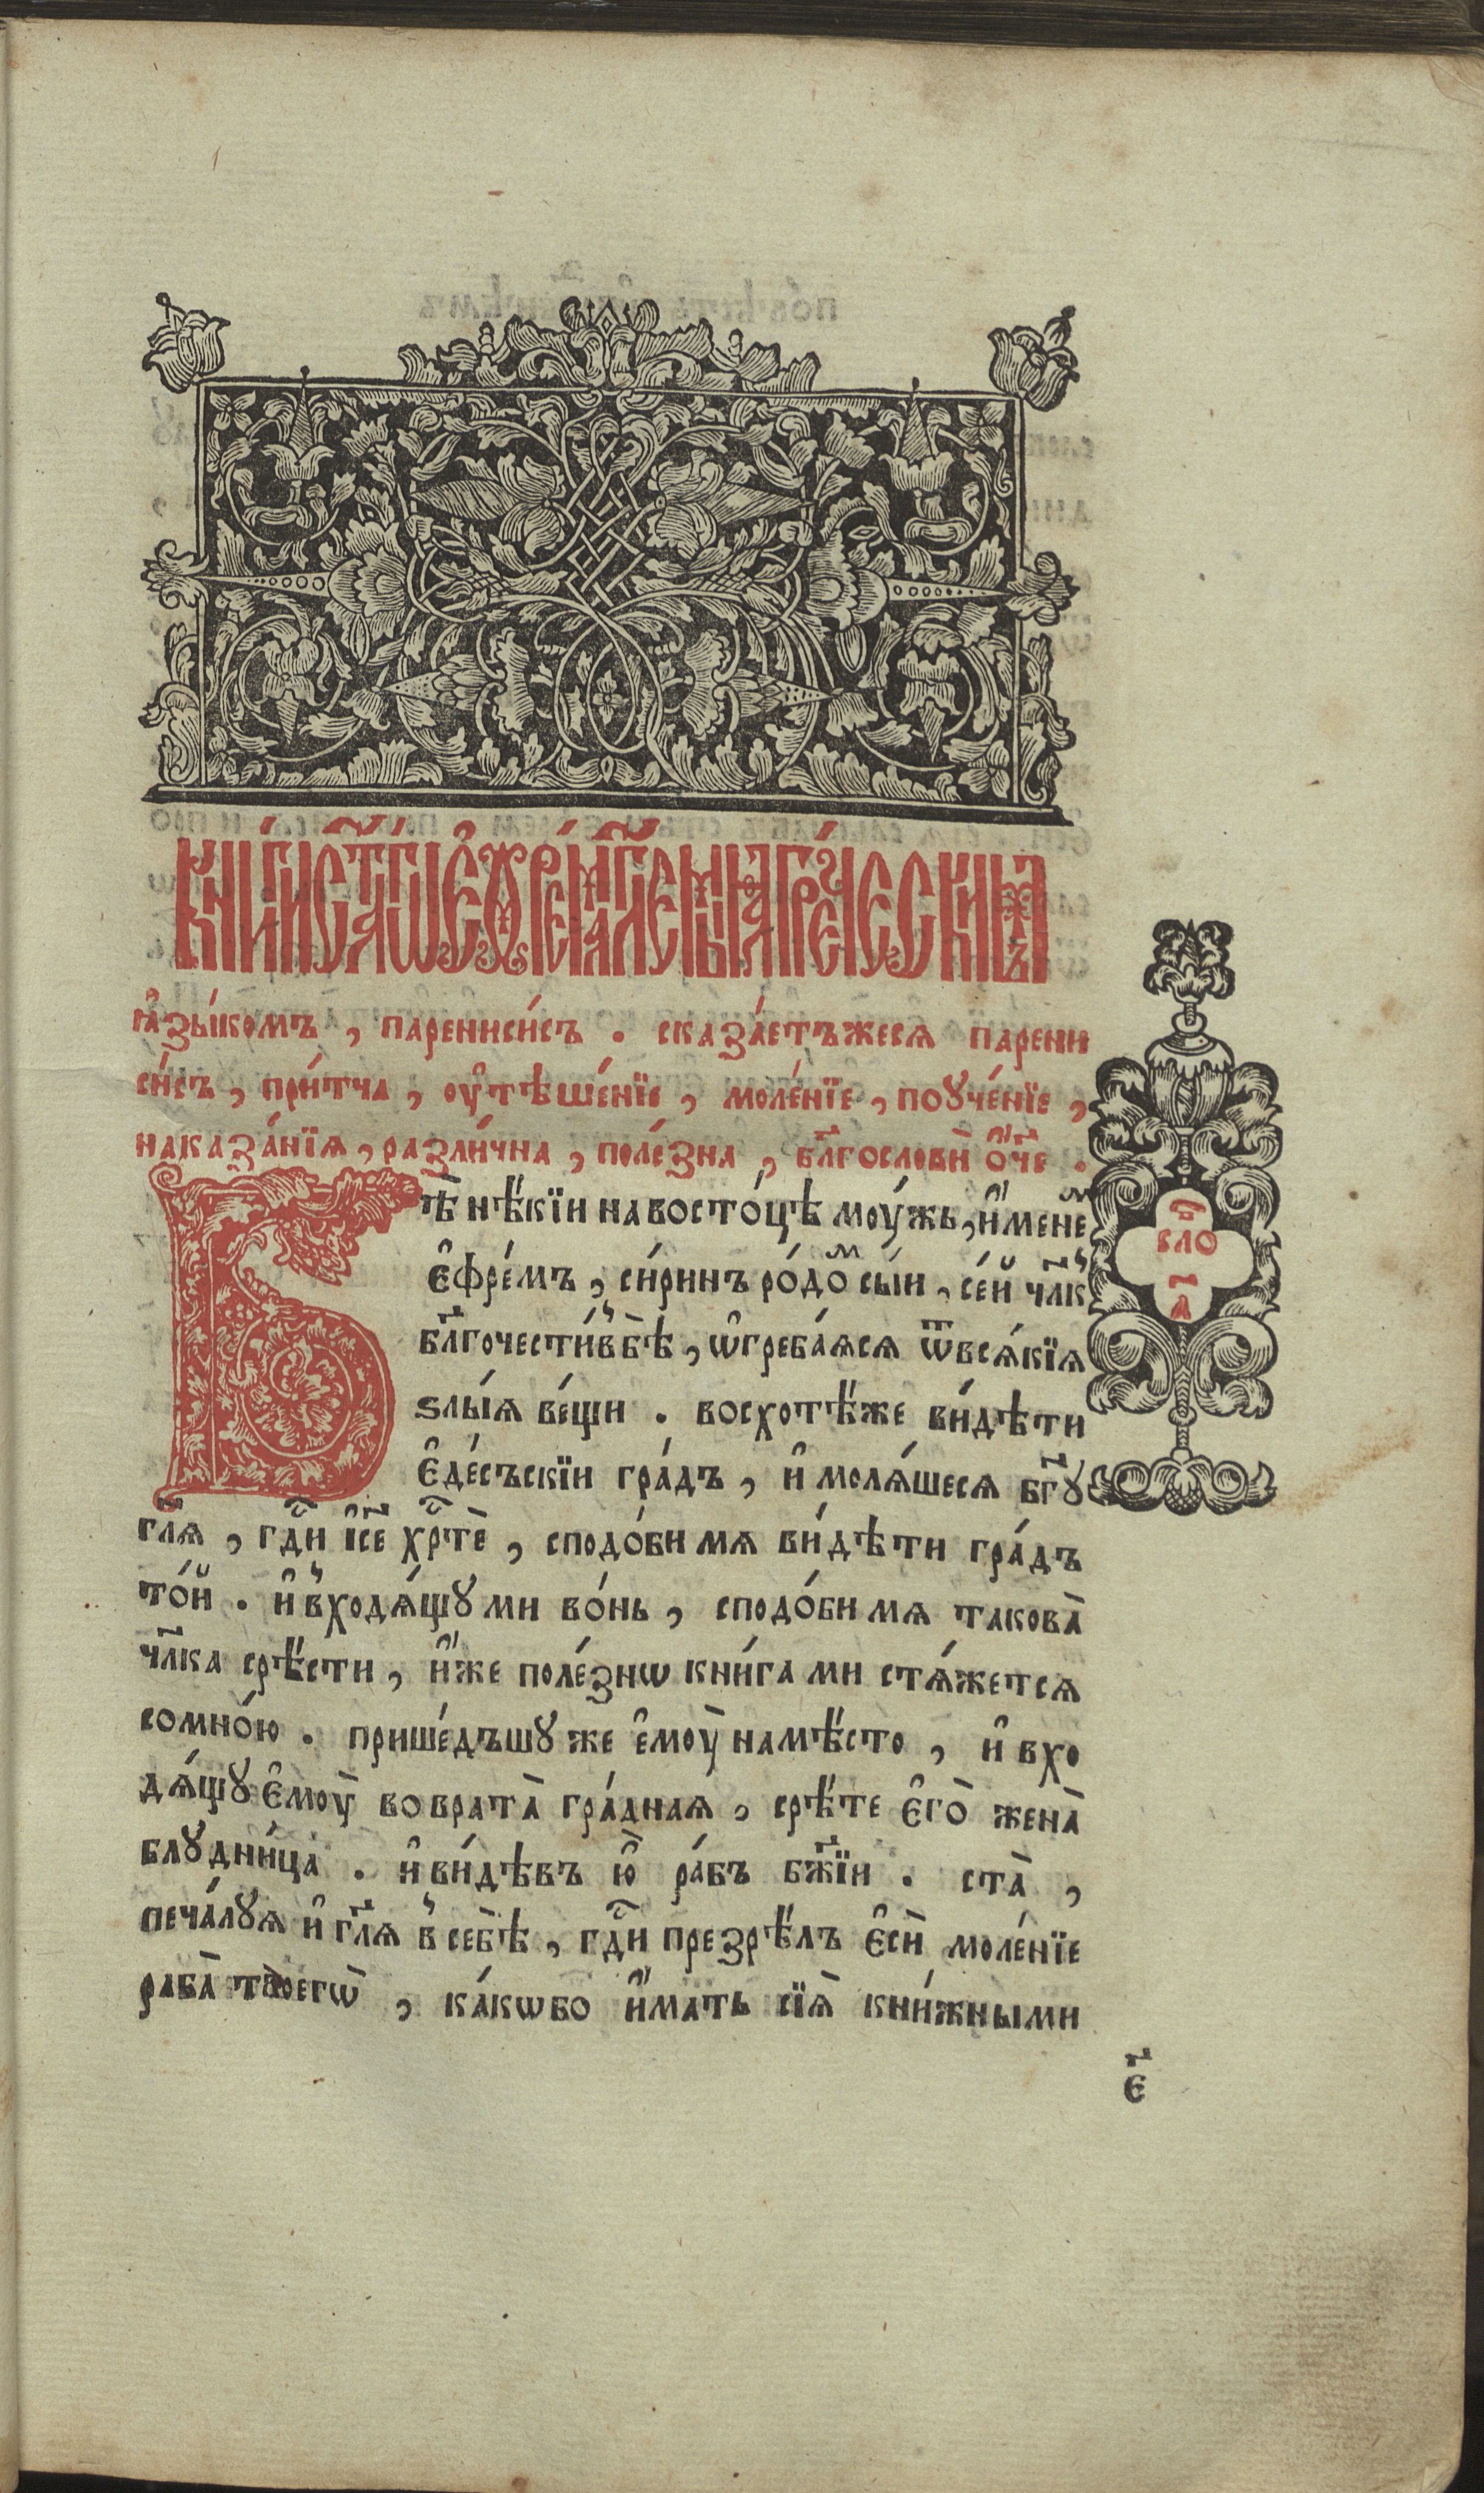 Кни́ги ст҃а́гѡ є҆фре́ма, гл҃емыѧ гре́ческимъ
ꙗ҆зы́комъ, паренисі́съ. сказа́етъжесѧ парени
си́съ, при́тча, ᲂу҆тѣше́нїе, моле́нїе, поꙋче́нїе,
наказа́нїѧ, разли́чна, поле́зна, бл҃гословѝ ѻ҆́ч҃е.
Бѣ̀ нѣ́кїи на восто́цѣ моу́жь, и҆́менеⷨ
є҆фре́мъ, си́ринъ ро́доⷨ сы́и, се́й чл҃к
бл҃гочести́в бѣ̀, ѡ҆греба́ѧсѧ ѿ всѧ́кїѧ
ѕлы́ѧ ве́щи. восхотѣ́же ви́дѣти
є҆де́съскїи гра́дъ, и҆ молѧ́шесѧ бг҃ꙋ
гл҃ѧ, гд҇и і҆с҃е хр҇тѐ, сподо́би мѧ ви́дѣти гра́дъ
то́й. и҆ в̾ходѧ́щꙋ ми во́нь, сподо́би мѧ такова̀
чл҃ка срѣ́сти, и҆́же поле́знѡ кни́гами стѧ́жетсѧ
сомно́ю. прише́дъшꙋ же є҆моу̀ на мѣ́сто, и҆ вхо
дѧ́щꙋ є҆моу̀ во врата̀ гра́днаѧ, срѣ́те є҆го̀ жена̀
блꙋдни́ца. и҆ ви́дѣвъ ю҆̀ ра́бъ бж҃їи. ста̀,
печа́лꙋѧ и҆ гл҃ѧ в̾ себѣ̀, гд҇и презрѣ́лъ є҆сѝ моле́нїе
раба̀ твоегѡ̀, ка́кѡбо и҆́мать сїѧ̀ кни́жными
сло
в
а҃
є҃